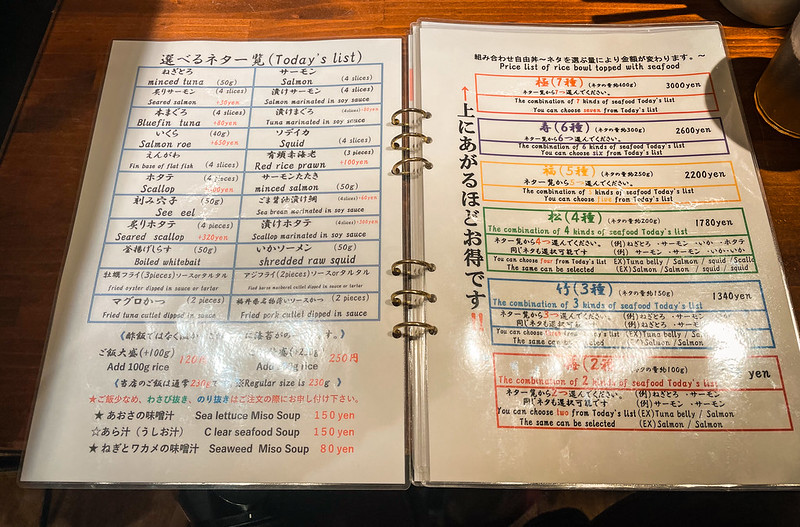 選べるネタ一覧(Today's list)
ねぎとろ
minced tuna (50g)
サーモン
Salmon (4 slices)
炙りサーモン (4 slices)
Seared salmon +30yen
漬けサーモン (4 slices)
Salmon marinated in soy sauce
本まぐろ (4 slices)
Bluefin tuna +80yen
漬けまぐろ (4 slices)
Tuna marinated in soy sauce
いくら (40g)
Salmon roe +650yen
ソデイカ
Squid (4 slices)
えんがわ
Fin base of flat fish (4 slices)
有頭赤海老 (3 pieces)
Red rice prawn +100yen
ホタテ (4 pieces)
Scallop
サーモンたたき
minced salmon (50g)
刻み穴子 (50g)
See eel
ごま醤油漬け鯛
Sea bream marinated in soy sauce
炙りホタテ (4 pieces)
Seared scallop +320yen
漬けホタテ
Scallop marinated in soy sauce
釜揚げしらす (50g)
Boiled whitebait
いかソーメン (50g)
shredded raw squid
牡蠣フライ(3pieces)ソースorタルタル
fried oyster dipped in sauce or tarter
アジフライ(2pieces)ソースorタルタル
Fried horse mackerel cutlet dipped in sauce or tarter
マグロかつ (2 pieces)
Fried tuna cutlet dipped in sauce
福井県名物 ソースかつ (2 pieces)
Fried pork cutlet dipped in sauce
《酢飯ではなく 海苔が す。》
ご飯大盛(+100g) 120
Add 100g rice
盛 250円
Add rice
《当店のご飯は通常230g ※Regular size is 230g 》
★ご飯少なめ、わさび抜き、のり抜きはご注文の際にお申し付け下さい。
★ あおさの味噌汁 Sea lettuce Miso Soup 150yen
☆あら汁(うしお汁) C lear seafood Soup 150yen
★ねぎとワカメの味噌汁 Seaweed Miso Soup 80yen
組み合わせ自由丼~ネタを選ぶ量により金額が変わります。~
Price list of rice bowl topped with seafood
↑上にあがるほどお得です!!
極(7種) (ネタの量約400g) 3000yen
ネタ一覧から7つ選んでください。
The combination of 7 kinds of seafood Today's list
You can choose seven from Today's list
寿(6種) (ネタの量約300g) 2600yen
ネタ一覧から6つ選んでください。
The combination of 6 kinds of seafood Today's list
You can choose six from Today's list
福(5種) (ネタの量約250g) 2200yen
ネタ一覧から5つ選んでください。
The combination of 5 kinds of seafood Today's list
You can choose five from Today's list
松(4種) (ネタの量約200g) 1780yen
The combination of 4 kinds of seafood Today's list
ネタ一覧から4つ選んでください。 (例)ねぎとろ・サーモン・いか・ホタテ
同じネタも選択可能です (例)サーモン・サーモン・いか・いか
You can choose four from Today's list (EX)Tuna belly / Salmon / squid / Scallo
The same can be selected (EX)Salmon / Salmon / squid / squid
竹(3種) (ネタの量約150g) 1340yen
The combination of 3 kinds of seafood Today's list
ネタ一覧から3つ選んでください。 (例)ねぎとろ・サーモン
同じネタも選択可能です (例)サーモン・サーモン
You can choose three from Today's list (EX)Tuna belly / Sa
The same can be selected (EX)Salmon / Salmon
(2種) (ネタの量約100g) yen
The combination of 2 kinds of seafood Today's list
ネタ一覧から2つ選んでください。 (例)ねぎとろ・サーモン
同じネタも選択可能です (例)サーモン・サーモン
You can choose two from Today's list (EX)Tuna belly / Salmon
The same can be selected (EX)Salmon / Salmon